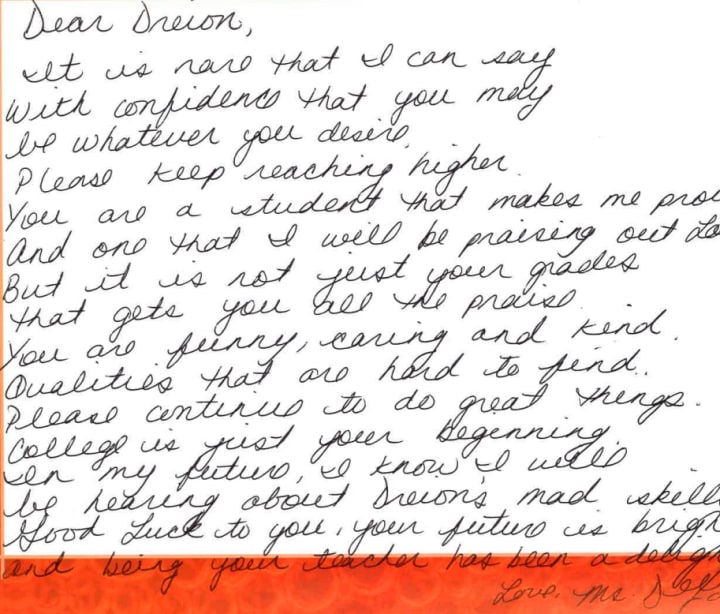 Dear Dreion,
It is rare that I can say
With confidence that you may
be whatever you desire.
Please keep reaching higher.
You are a student that makes me prou
And one that I will be praising out Lo
But it is not just your grades
that gets you all the praise.
You are funny, caring and kind.
Qualities that are hard to find.
Please continue to do great things.
College is just your beginning.
In my future, I know I will
be hearing about Dreion's mad skill
Good Luck to you, your future is brigh
and being your teacher has been a deligh
Love, Ms.